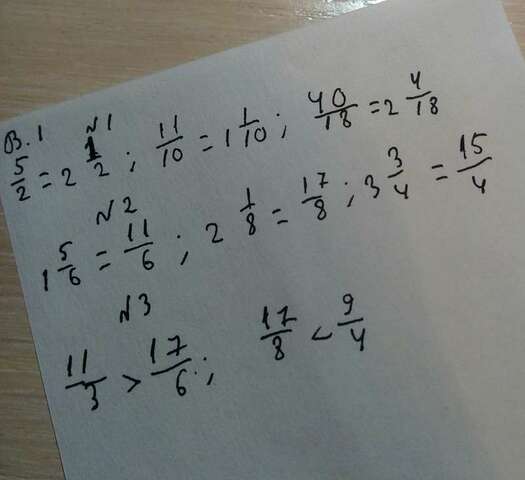 В. 1 №1
5/2 = 2 1/2 ; 11/10 = 1 1/10 ; 40/18 = 2 4/18
№2
1 5/6 = 11/6 ; 2 1/8 = 17/8 ; 3 3/4 = 15/4
№3
11/3 > 17/6 ; 17/8 < 9/4